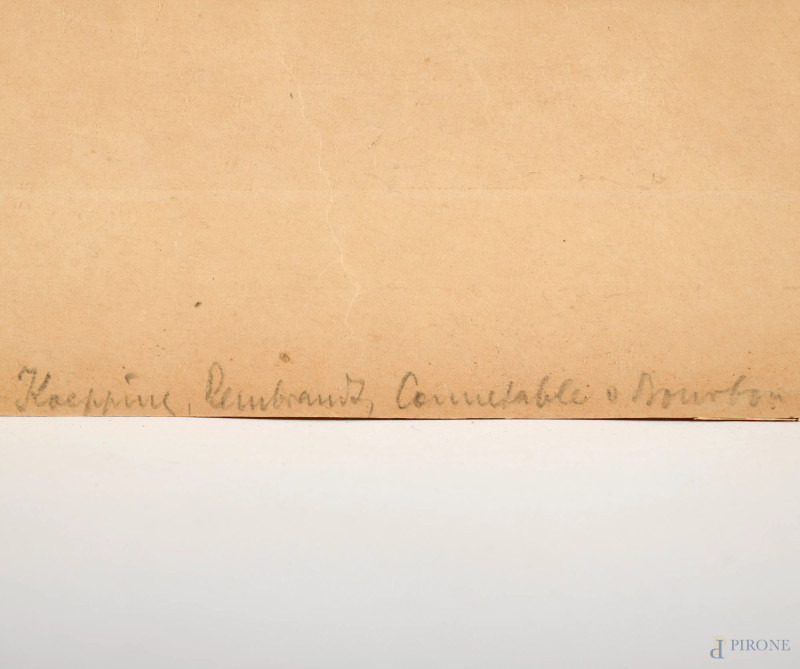 Koepping, Rembrandt, Connetable v Bourbon
PIRONE